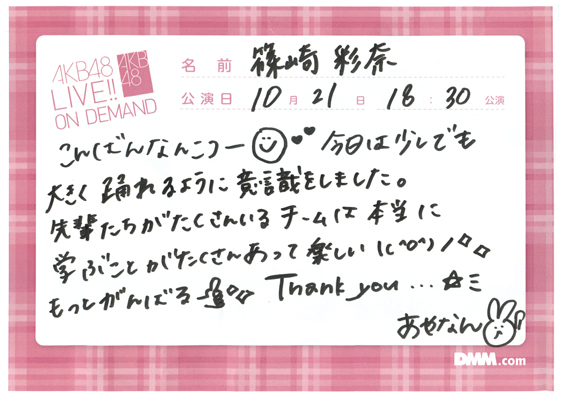 AKB48
LIVE!!
ON DEMAND
AKB
48
名前 篠崎彩奈
公演日 10月21日 18:30公演
こんばんなんこつー 今日は少しでも
大きく踊れるように意識をしました。
先輩たちがたくさんいるチームは本当に
学ぶことがたくさんあって楽しい\(^o^)/
もっとがんばる Thank you...☆ミ
あやなん
DMM.com